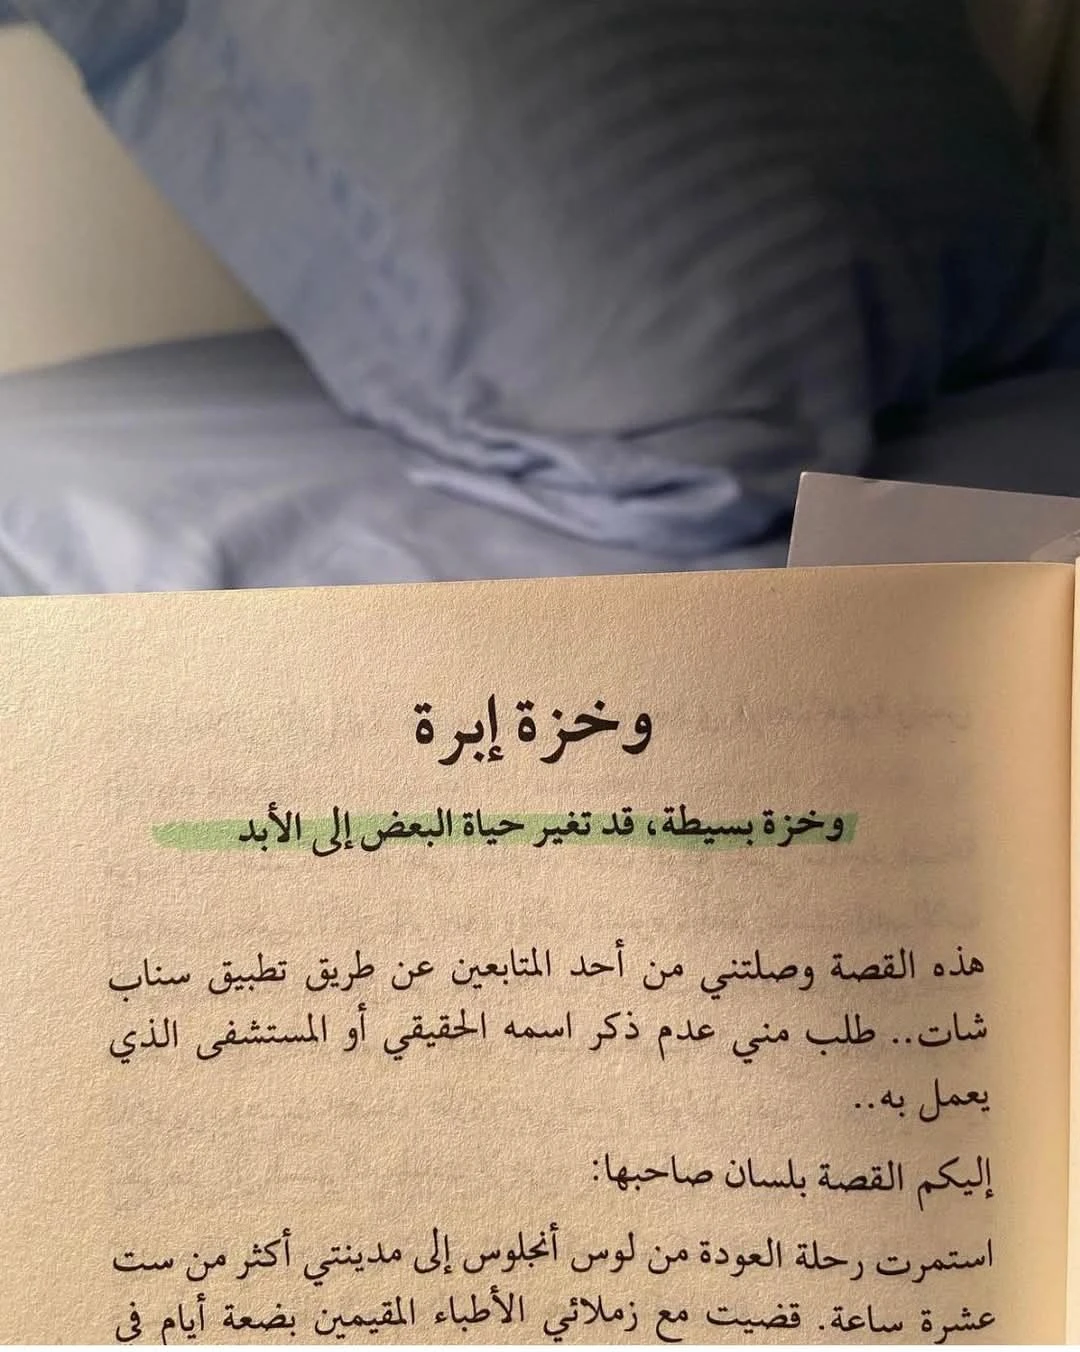 وخزة إبرة
وخزة بسيطة، قد تغير حياة البعض إلى الأبد
هذه القصة وصلتني من أحد المتابعين عن طريق تطبيق سناب
شات.. طلب مني عدم ذكر اسمه الحقيقي أو المستشفى الذي
يعمل به..
إليكم القصة بلسان صاحبها:
استمرت رحلة العودة من لوس أنجلوس إلى مدينتي أكثر من ست
عشرة ساعة. قضيت مع زملائي الأطباء المقيمين بضعة أيام في